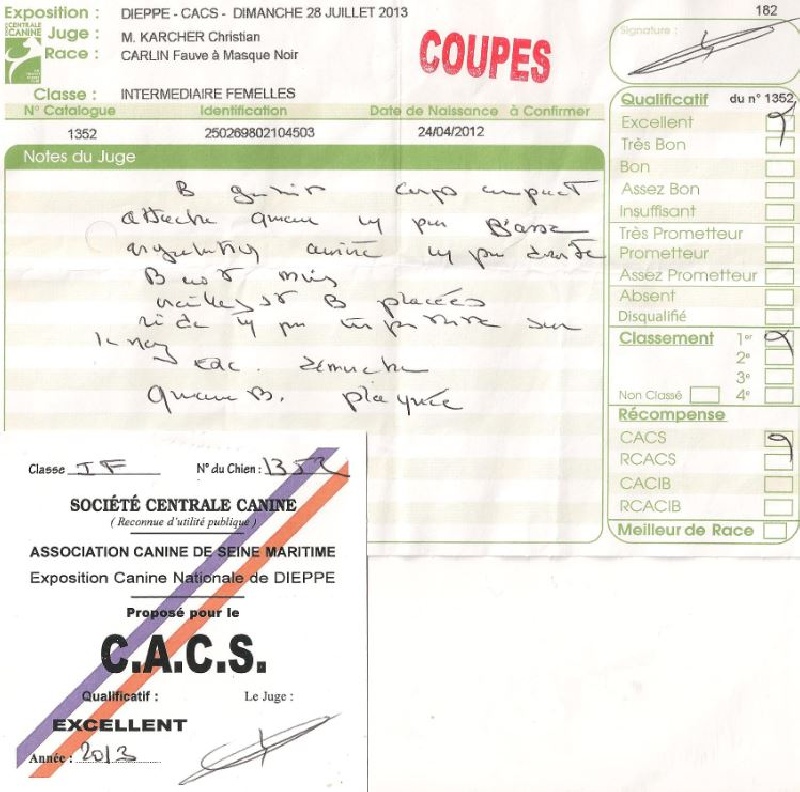 Exposition : DIEPPE - CACS - DIMANCHE 28 JUILLET 2013
182
CENTRALE CANINE
Juge : M. KARCHER Christian
COUPES
Signature :
Race : CARLIN Fauve à Masque Noir
Classe : INTERMEDIAIRE FEMELLES
N° Catalogue Identification Date de Naissance à Confirmer
1352 250269802104503 24/04/2012
Notes du Juge
B corps compact
attache queue un peu Basse
angulation un peu droite
B
oreilles B placées
ride un peu sur
le nez
démarche
queue B. plaquée
Qualificatif du n° 1352
Excellent
Très Bon
Bon
Assez Bon
Insuffisant
Très Prometteur
Prometteur
Assez Prometteur
Absent
Disqualifié
Classement 1er
2e
3e
Non Classé 4e
Récompense
CACS
RCACS
CACIB
RCACIB
Meilleur de Race
Classe IF N° du Chien : 1352
SOCIÉTÉ CENTRALE CANINE
( Reconnue d'utilité publique )
ASSOCIATION CANINE DE SEINE MARITIME
Exposition Canine Nationale de DIEPPE
Proposé pour le
C.A.C.S.
Qualificatif : Le Juge :
EXCELLENT
Année : 2013